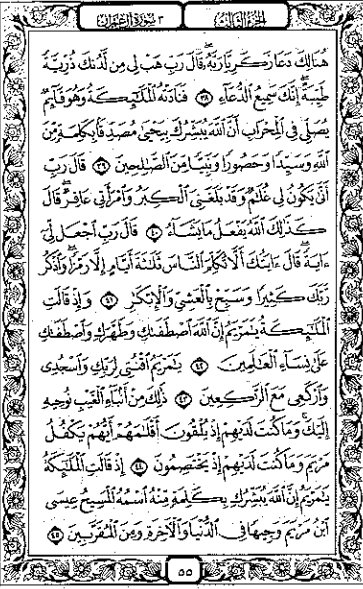 الجزء الثالث
٣ سورة آل عمران
هُنَالِكَ دَعَا زَكَرِيَّا رَبَّهُۥ قَالَ رَبِّ هَبْ لِى مِن لَّدُنكَ ذُرِّيَّةً
طَيِّبَةً إِنَّكَ سَمِيعُ ٱلدُّعَآءِ ٣٨ فَنَادَتْهُ ٱلْمَلَٰٓئِكَةُ وَهُوَ قَآئِمٌ
يُصَلِّى فِى ٱلْمِحْرَابِ أَنَّ ٱللَّهَ يُبَشِّرُكَ بِيَحْيَىٰ مُصَدِّقًۢا بِكَلِمَةٍ مِّنَ
ٱللَّهِ وَسَيِّدًا وَحَصُورًا وَنَبِيًّا مِّنَ ٱلصَّٰلِحِينَ ٣٩ قَالَ رَبِّ
أَنَّىٰ يَكُونُ لِى غُلَٰمٌ وَقَدْ بَلَغَنِىَ ٱلْكِبَرُ وَٱمْرَأَتِى عَاقِرٌ قَالَ
كَذَٰلِكَ ٱللَّهُ يَفْعَلُ مَا يَشَآءُ ٤٠ قَالَ رَبِّ ٱجْعَل لِّىٓ
ءَايَةً قَالَ ءَايَتُكَ أَلَّا تُكَلِّمَ ٱلنَّاسَ ثَلَٰثَةَ أَيَّامٍ إِلَّا رَمْزًا وَٱذْكُر
رَّبَّكَ كَثِيرًا وَسَبِّحْ بِٱلْعَشِىِّ وَٱلْإِبْكَٰرِ ٤١ وَإِذْ قَالَتِ
ٱلْمَلَٰٓئِكَةُ يَٰمَرْيَمُ إِنَّ ٱللَّهَ ٱصْطَفَىٰكِ وَطَهَّرَكِ وَٱصْطَفَىٰكِ
عَلَىٰ نِسَآءِ ٱلْعَٰلَمِينَ ٤٢ يَٰمَرْيَمُ ٱقْنُتِى لِرَبِّكِ وَٱسْجُدِى
وَٱرْكَعِى مَعَ ٱلرَّٰكِعِينَ ٤٣ ذَٰلِكَ مِنْ أَنۢبَآءِ ٱلْغَيْبِ نُوحِيهِ
إِلَيْكَ وَمَا كُنتَ لَدَيْهِمْ إِذْ يُلْقُونَ أَقْلَٰمَهُمْ أَيُّهُمْ يَكْفُلُ
مَرْيَمَ وَمَا كُنتَ لَدَيْهِمْ إِذْ يَخْتَصِمُونَ ٤٤ إِذْ قَالَتِ ٱلْمَلَٰٓئِكَةُ
يَٰمَرْيَمُ إِنَّ ٱللَّهَ يُبَشِّرُكِ بِكَلِمَةٍ مِّنْهُ ٱسْمُهُ ٱلْمَسِيحُ عِيسَى
ٱبْنُ مَرْيَمَ وَجِيهًا فِى ٱلدُّنْيَا وَٱلْءَاخِرَةِ وَمِنَ ٱلْمُقَرَّبِينَ ٤٥
٥٥